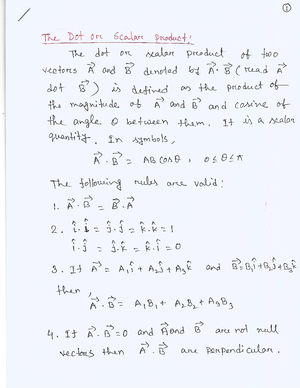 ①
The Dot or Scalar product:
The dot or scalar product of two
vectors A⃗ and B⃗ denoted by A⃗·B⃗ (read A⃗
dot B⃗) is defined as the product of
the magnitude of A⃗ and B⃗ and cosine of
the angle θ between them. It is a scalar
quantity. In symbols,
A⃗·B⃗ = AB cosθ, 0≤θ≤π
The following rules are valid:
1. A⃗·B⃗ = B⃗·A⃗
2. î·î = ĵ·ĵ = k̂·k̂ = 1
î·ĵ = ĵ·k̂ = k̂·î = 0
3. If A⃗ = A₁î + A₂ĵ + A₃k̂ and B⃗ = B₁î + B₂ĵ + B₃k̂
then,
A⃗·B⃗ = A₁B₁ + A₂B₂ + A₃B₃
4. If A⃗·B⃗ = 0 and A⃗ and B⃗ are not null
vectors then A⃗·B⃗ are perpendicular.